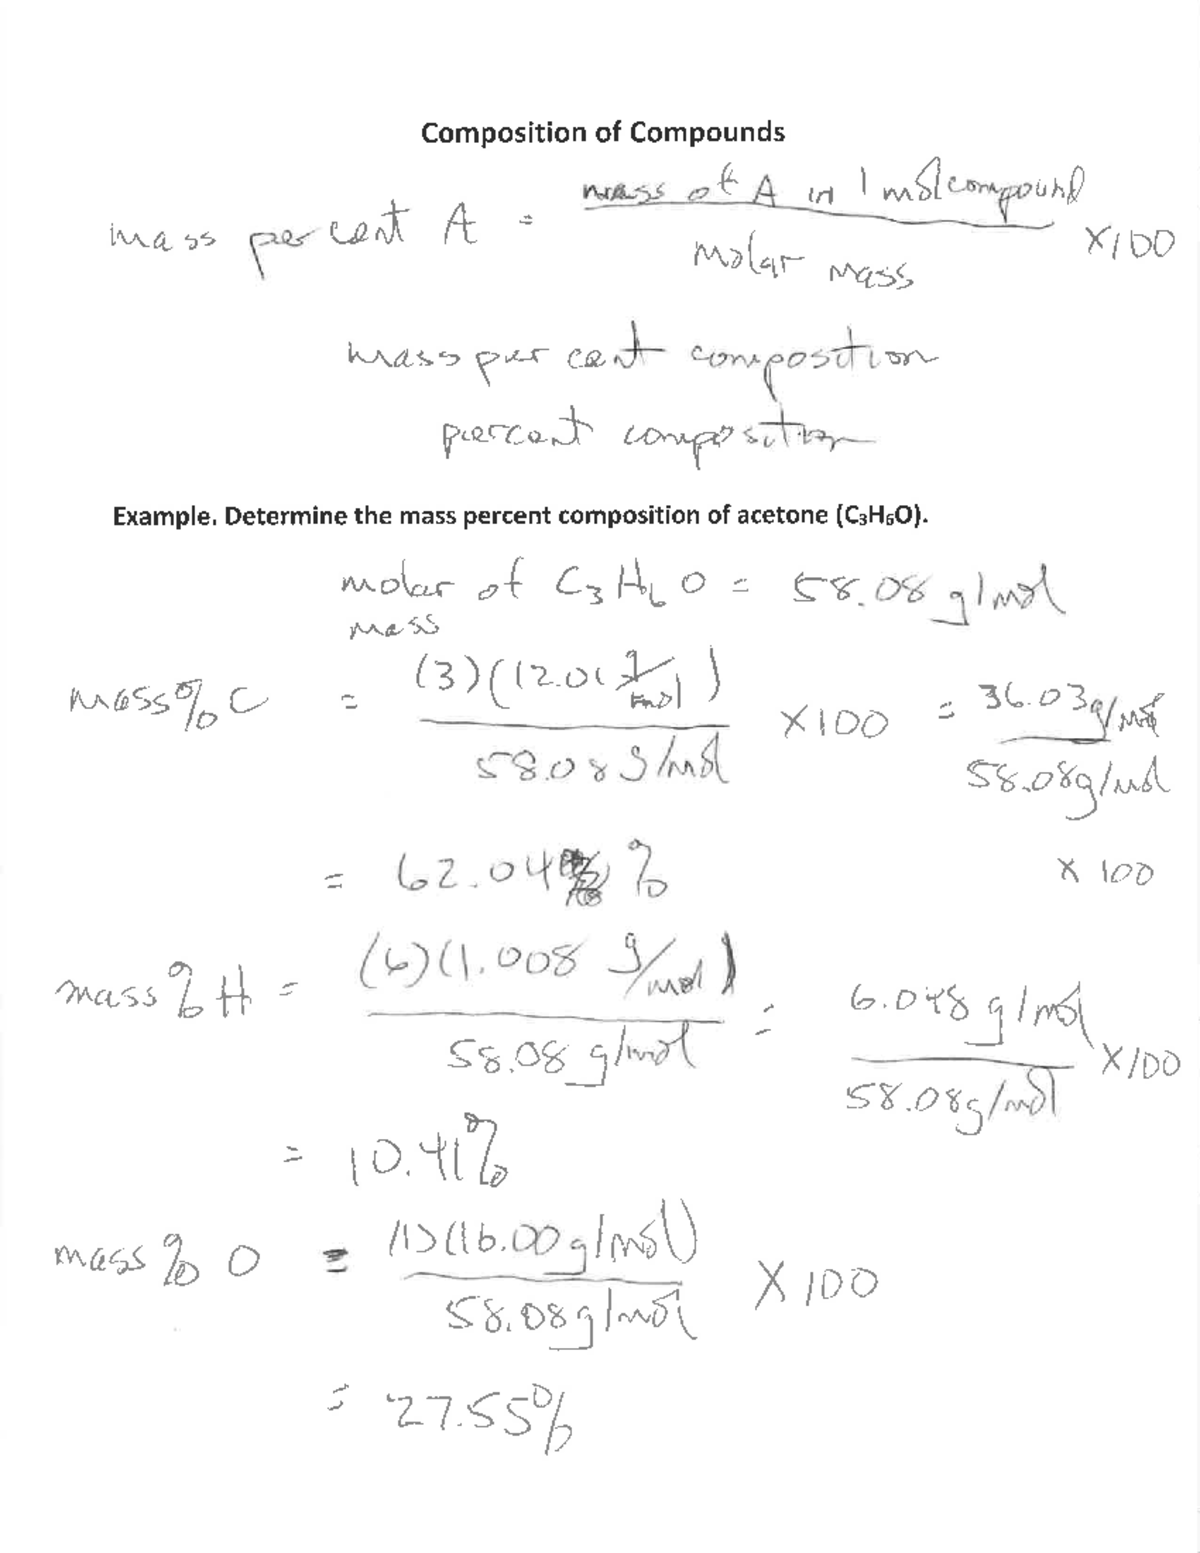 Composition of Compounds
mass percent A = mass of A in 1 mol compound / molar mass X100
mass per cent composition
percent composition
Example. Determine the mass percent composition of acetone (C₃H₆O).
molar mass of C₃H₆O = 58.08 g/mol
mass % C = (3)(12.01 g/mol) / 58.08 g/mol X100 = 36.03 g/mol / 58.08 g/mol X 100
= 62.04 %
mass % H = (6)(1.008 g/mol) / 58.08 g/mol = 6.048 g/mol / 58.08 g/mol X100
= 10.41%
mass % O = (1)(16.00 g/mol) / 58.08 g/mol X 100
= 27.55%